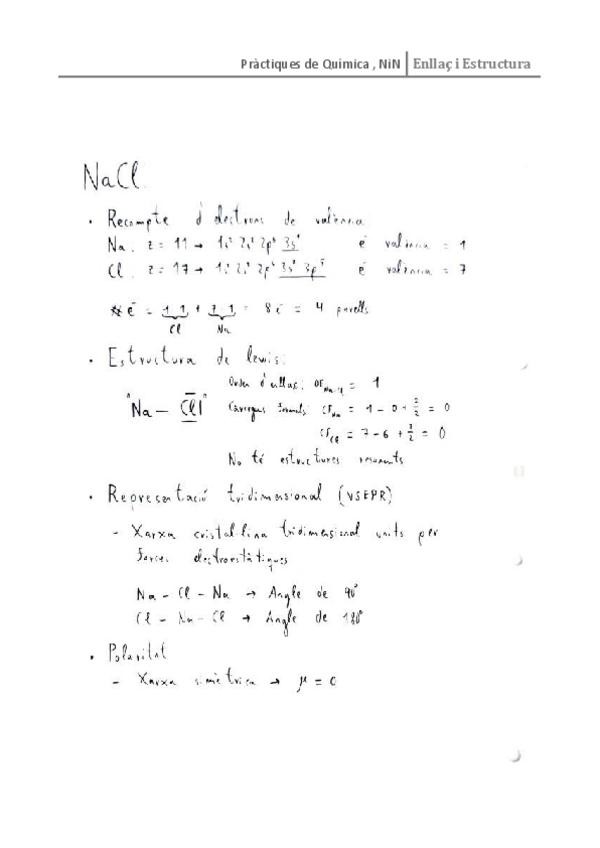 Pràctiques de Química , NiN Enllaç i Estructura
NaCl
· Recompte d'electrons de valència
Na: z = 11 → 1s² 2s² 2p⁶ 3s¹ e⁻ valència = 1
Cl: z = 17 → 1s² 2s² 2p⁶ 3s² 3p⁵ e⁻ valència = 7
= 8e⁻ = 4 parells
Cl Na
· Estructura de lewis:
Ordre d'enllaç: = 1
"Na — Cl|" Càrregues formals: CF Na = 1 - 0 + 2/2 = 0
CF Cl = 7 - 6 + 2/2 = 0
No té estructures resonants
· Representació tridimensional (VSEPR)
- Xarxa cristal·lina tridimensional units per
forces electrostàtiques
Na - Cl - Na → Angle de 90°
Cl - Na - Cl → Angle de 180°
· Polaritat
- Xarxa simètrica → μ = 0